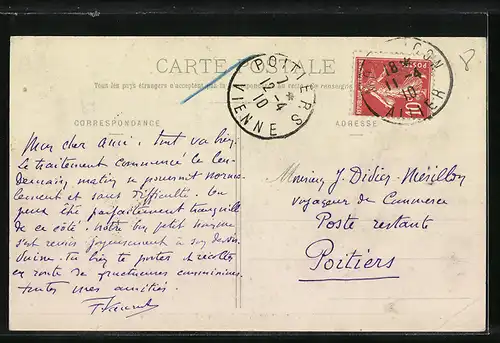 CARTE POSTALE
Tous les pays étrangers n'acceptent pas
CORRESPONDANCE
ADRESSE
POITIERS
7
12-4
10
VIENNE
18
11-4
10
ALLIER
POSTES
10
8
Mon cher ami: tout va bien
le traitement commencé le len-
demain matin se poursuit norma-
lement et sans difficulté. On
peux être parfaitement tranquille
de ce côté. Notre bon petit homme
s'est remis joyeusement à son dessin
Suisse. Tu vas bien te porter et récolter
en route de fructueuses commissions.
toutes mes amitiés.
Monsieur J. Didier-Mérillon
Voyageur de Commerce
Poste restante
Poitiers